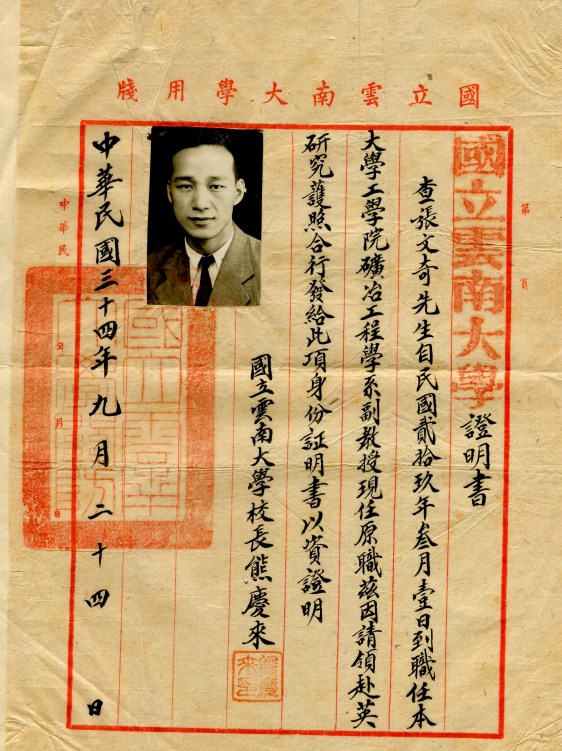 國立雲南大學用牋
第 頁
國立雲南大學證明書
查張文奇先生自民國貳拾玖年叁月壹日到職任本
大學工學院礦冶工程學系副教授現任原職茲因請領赴英
研究護照合行發給此項身份証明書以資證明
國立雲南大學校長熊慶來
熊慶來印
中華民國三十四年九月二十四日
中華民 年 月 日